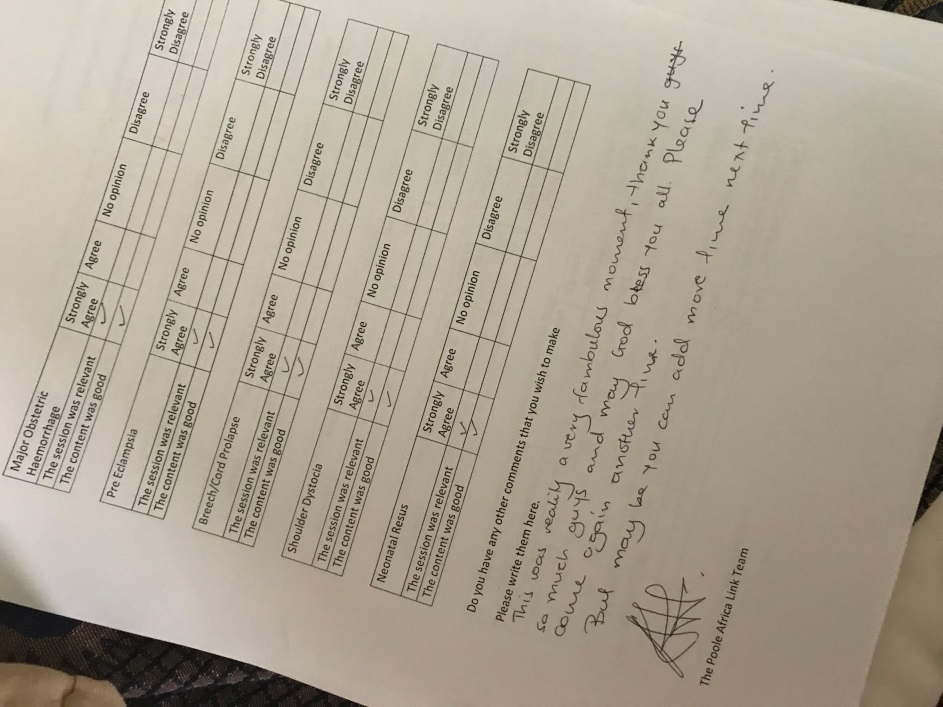 Major Obstetric
Haemorrhage
Strongly Agree
Agree
No opinion
Disagree
Strongly Disagree
The session was relevant
The content was good
Pre Eclampsia
Strongly Agree
Agree
No opinion
Disagree
Strongly Disagree
The session was relevant
The content was good
Breech/Cord Prolapse
Strongly Agree
Agree
No opinion
Disagree
Strongly Disagree
The session was relevant
The content was good
Shoulder Dystocia
Strongly Agree
Agree
No opinion
Disagree
Strongly Disagree
The session was relevant
The content was good
Neonatal Resus
Strongly Agree
Agree
No opinion
Disagree
Strongly Disagree
The session was relevant
The content was good
Do you have any other comments that you wish to make
Please write them here.
This was really a very fambulous moment, thank you guys
so much guys and may God bless you all. Please
come again another time.
But may be you can add more time next time.
The Poole Africa Link Team